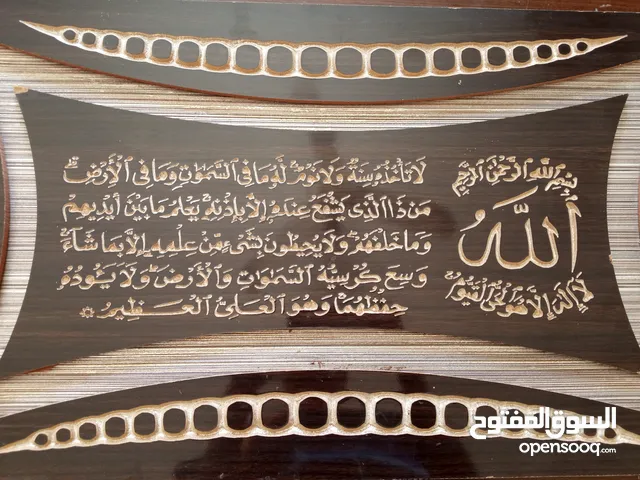 بِسْمِ اللهِ الرَّحْمٰنِ الرَّحِيْمِ
اَللّٰهُ
لَا اِلٰهَ اِلَّا هُوَ الْحَىُّ الْقَيُّوْمُ
لَا تَأْخُذُهُ سِنَةٌ وَلَا نَوْمٌ لَهُ مَا فِي السَّمٰوَاتِ وَمَا فِي الْأَرْضِ
مَنْ ذَا الَّذِي يَشْفَعُ عِنْدَهُ إِلَّا بِإِذْنِهِ يَعْلَمُ مَا بَيْنَ أَيْدِيهِمْ
وَمَا خَلْفَهُمْ وَلَا يُحِيطُونَ بِشَيْءٍ مِّنْ عِلْمِهِ إِلَّا بِمَا شَاءَ
وَسِعَ كُرْسِيُّهُ السَّمٰوَاتِ وَالْأَرْضَ وَلَا يَئُودُهُ
حِفْظُهُمَا وَهُوَ الْعَلِيُّ الْعَظِيمُ
السوق المفتوح
opensooq.com